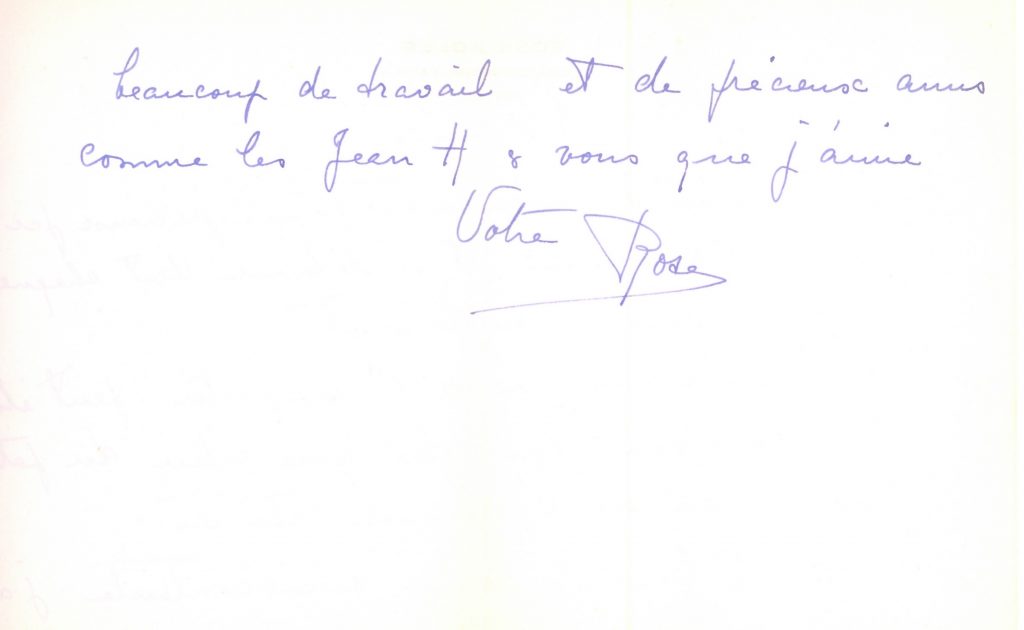 beaucoup de travail et de précieux amis
comme les Jean H & vous que j'aime
Votre Rose